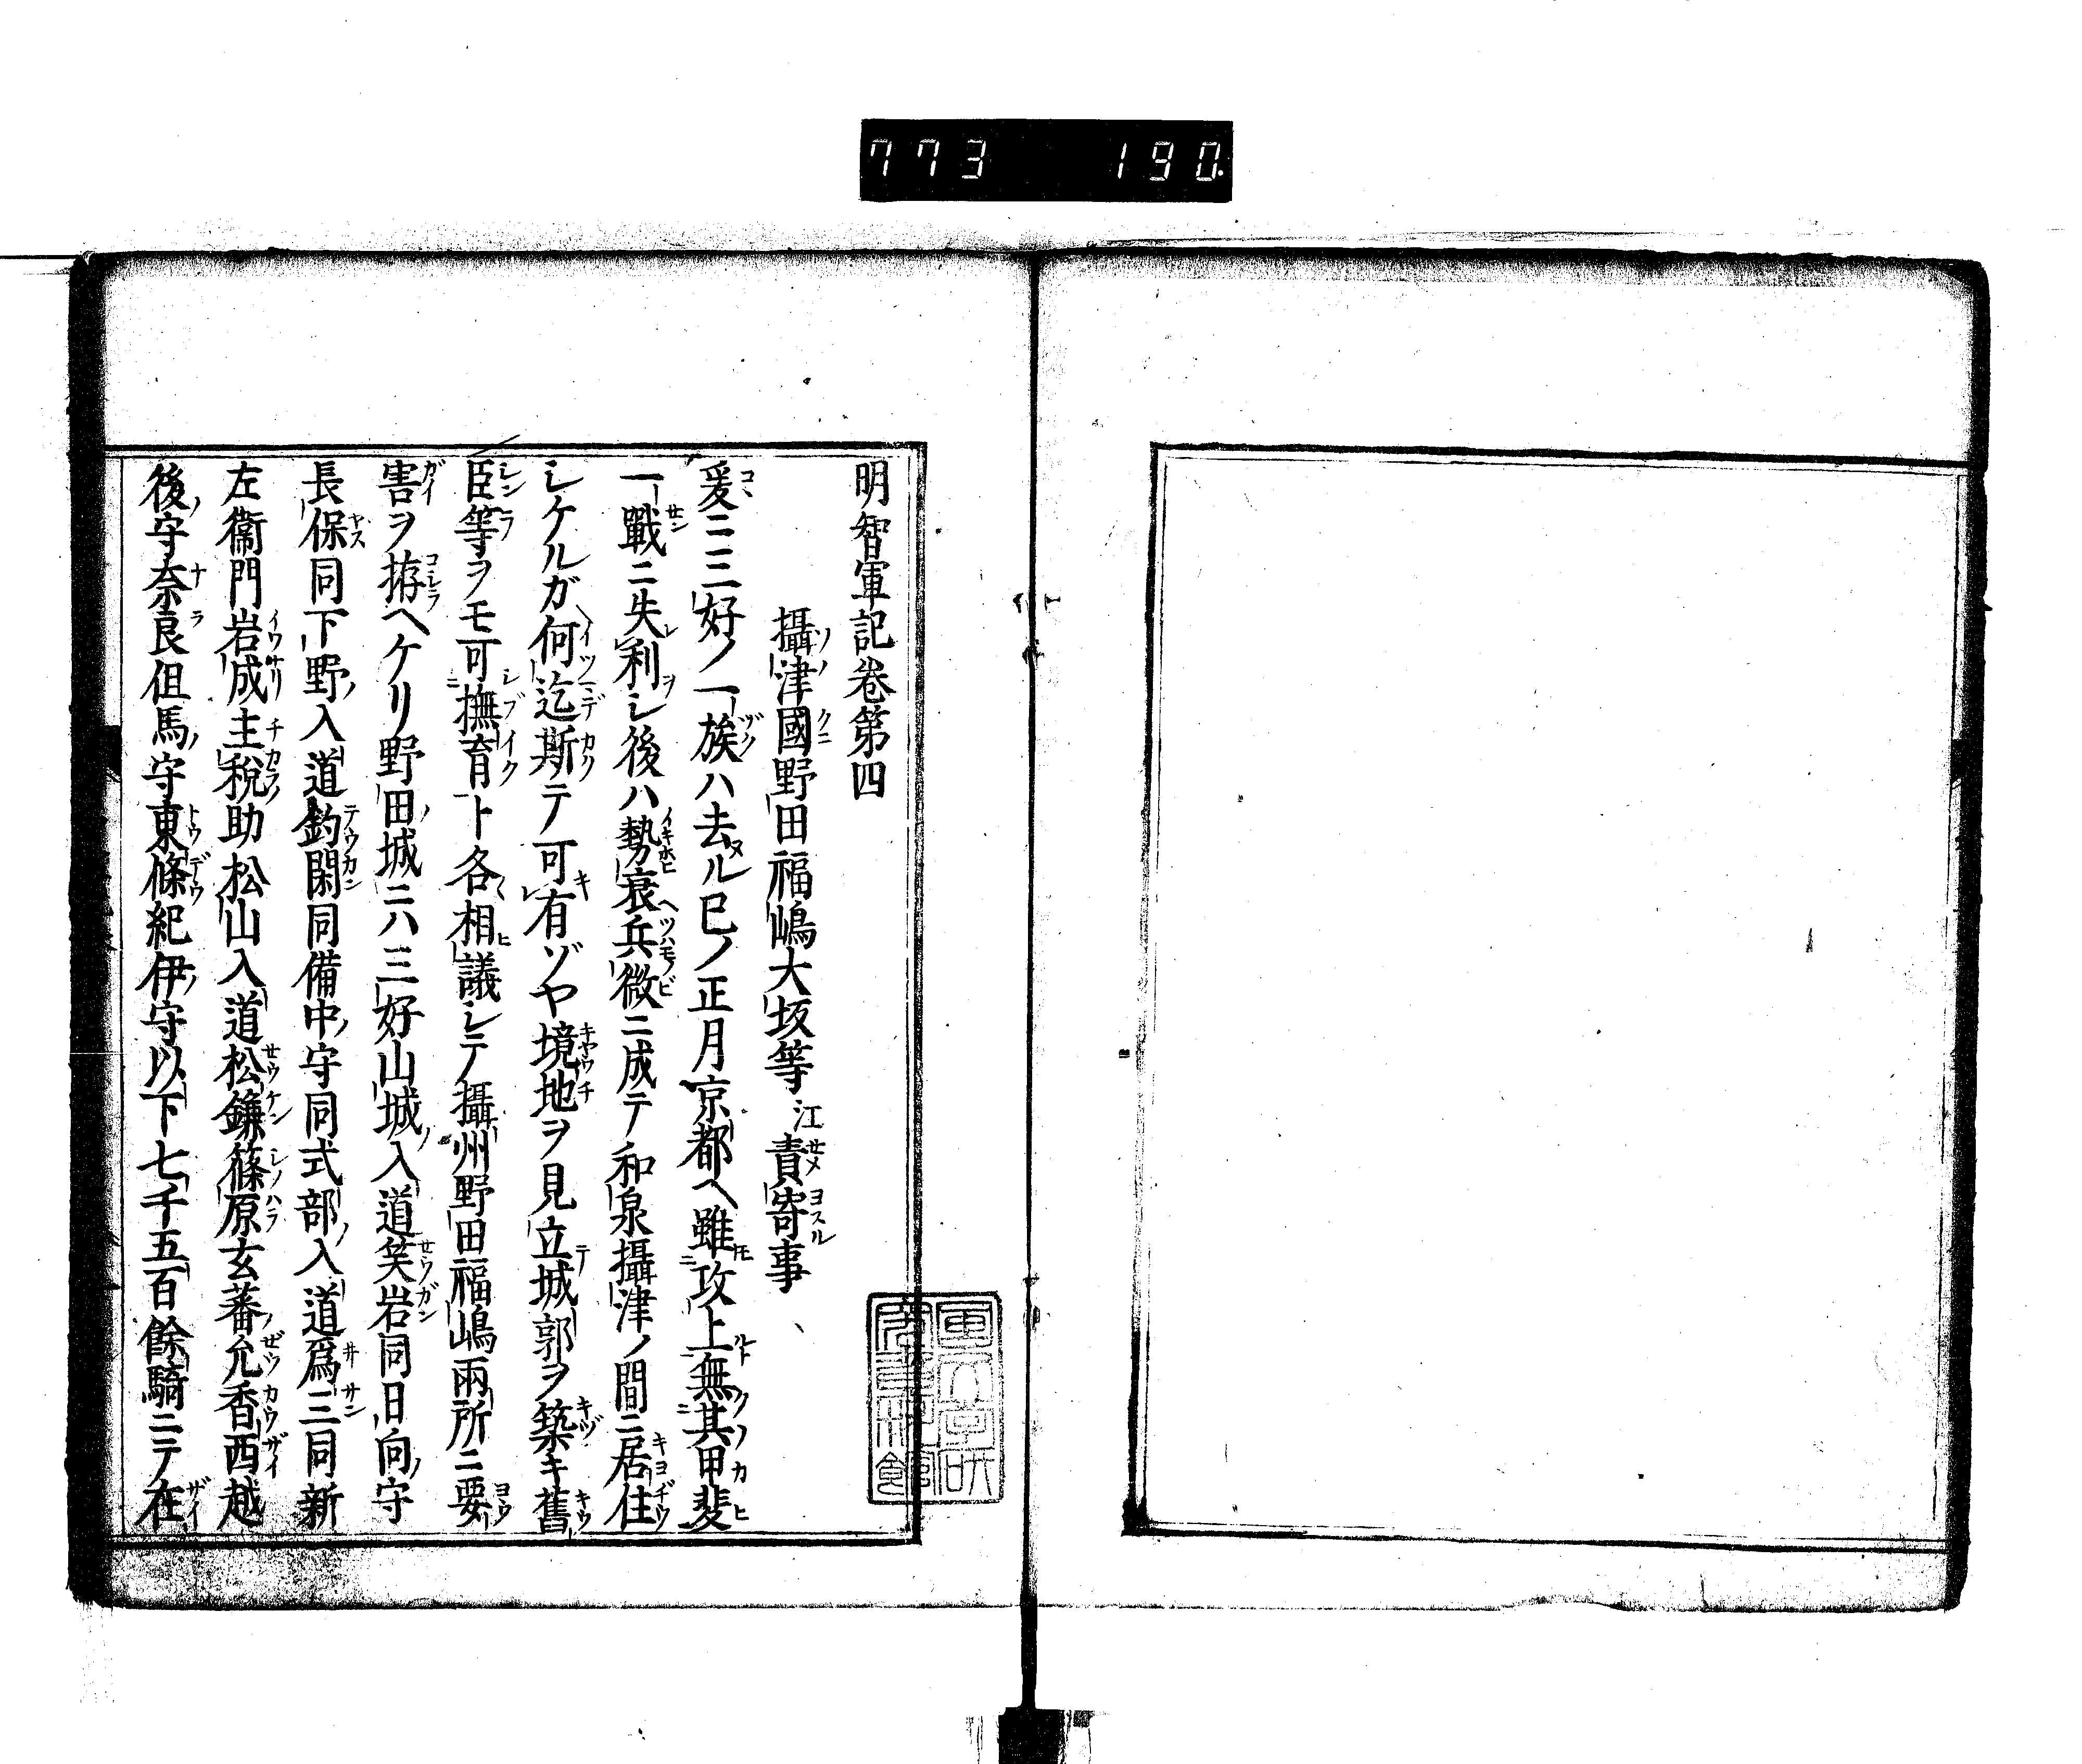 773 190
明智軍記卷第四
攝津國野田福嶋大坂等江責寄事
爰ニ三好ノ一族ハ去ル巳ノ正月京都ヘ雖攻上無其甲斐
一戰ニ失利シ後ハ勢衰兵微ニ成テ和泉攝津ノ間ニ居住
シケルガ何迄斯テ可有ゾヤ境地ヲ見立城郭ヲ築キ舊
臣等ヲモ可撫育ト各相議シテ攝州野田福嶋兩所ニ要
害ヲ拵ヘケリ野田城ニハ三好山城入道笑岩同日向守
長保同下野入道釣閑同備中守同式部入道爲三同新
左衞門岩成主税助松山入道松鎌篠原玄蕃允香西越
後守奈良但馬守東條紀伊守以下七千五百餘騎ニテ在